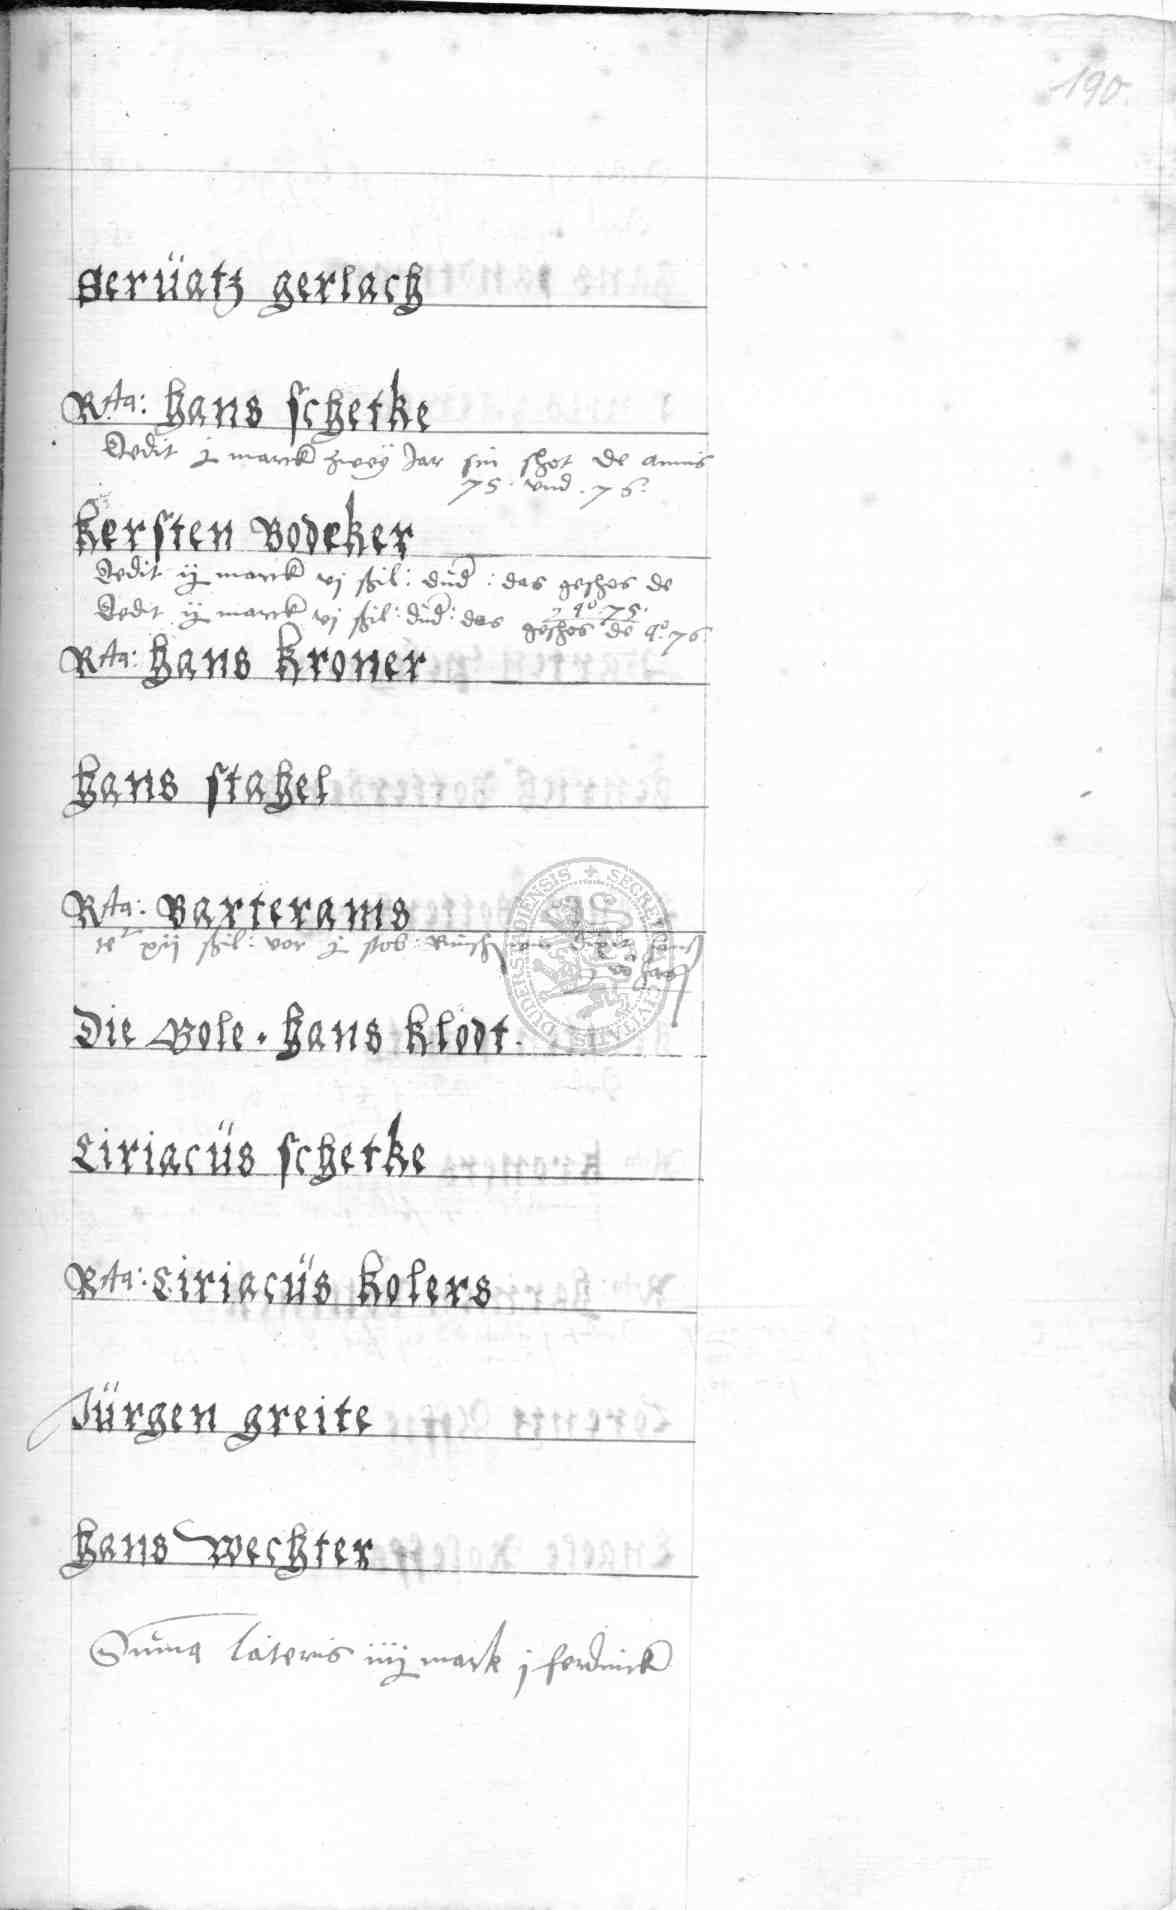 190
Serüatz gerlach
Rta: Hans schetke
Dedit j marck zwey Jar sin schot de annis
75. vnd . 76.
Kersten Bodeker
Dedit ij marck vj ßil: düd: das geschos de
ao 75.
Dedit ij marck vj ßil: düd: das geschos de ao 76.
Rta: Hans Kroner
Hans stahel
Rta: Barterams
xij ßil: vor j
Die Bole. Hans Klodt.
Ciriacüs schetke
Rta: Ciriacüs Kolers
Jürgen greite
Hans Wechter
Suma lateris iiij mark j ferdinck
SECRETUM CIVITATIS DUDERSTADIENSIS